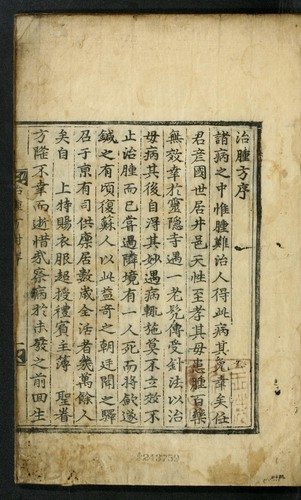 治腫方序
諸病之中惟腫難治人得此病其究幸矣任
君彦國世居井邑天性至孝其母患腫百藥
無效幸於靈隱寺遇一老髡傳受針法以治
母病其後自得其妙遇病輒施莫不立效不
止治腫而已嘗過隣境有一人死而將斂遂
鍼之有頃復蘇人以此益奇之朝廷聞之驛
召于京有司供廩居數歲全活者幾萬餘人
矣自 上特賜衣服超授禮賓主簿 聖眷
方隆不幸而逝惜哉察病於未發之前回生
243759